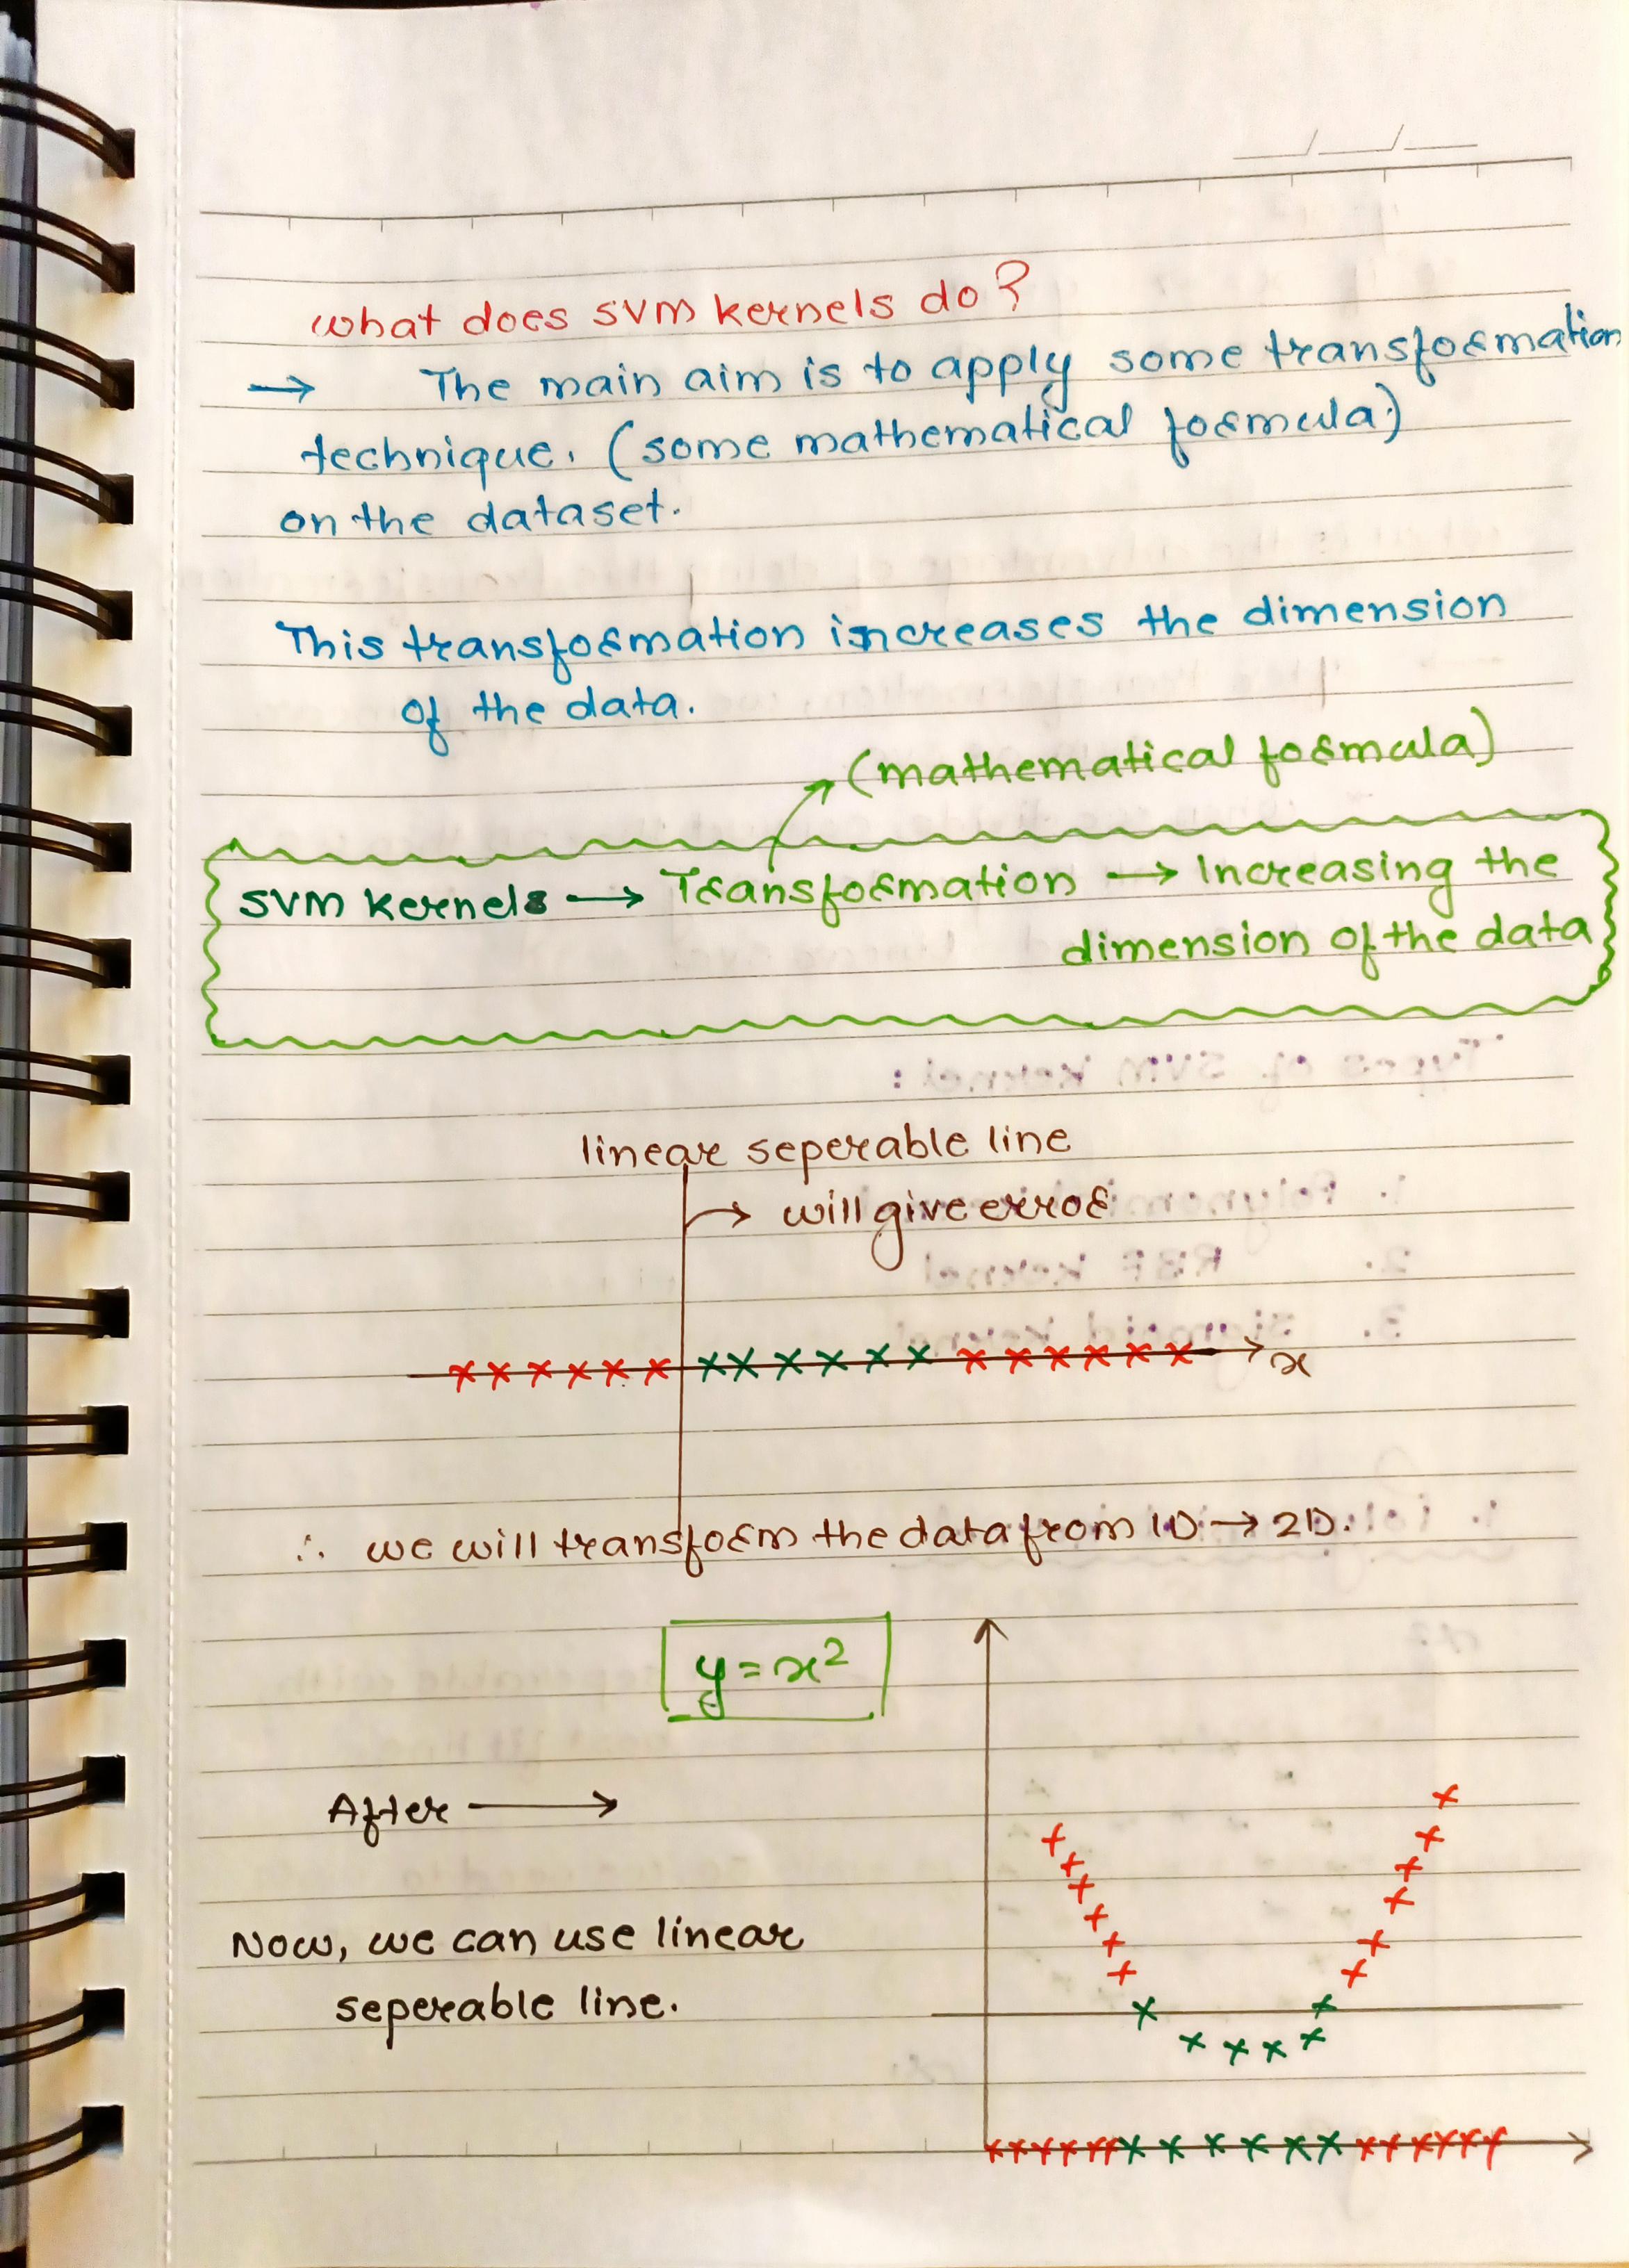 what does SVM kernels do?
→ The main aim is to apply some transformation
technique. (some mathematical formula)
on the dataset.
This transformation increases the dimension
of the data.
(mathematical formula)
SVM Kernels → Transformation → Increasing the
dimension of the data
linear seperable line
→ will give error
x
∴ we will transform the data from 1D → 2D.
y = x²
After →
Now, we can use linear
seperable line.